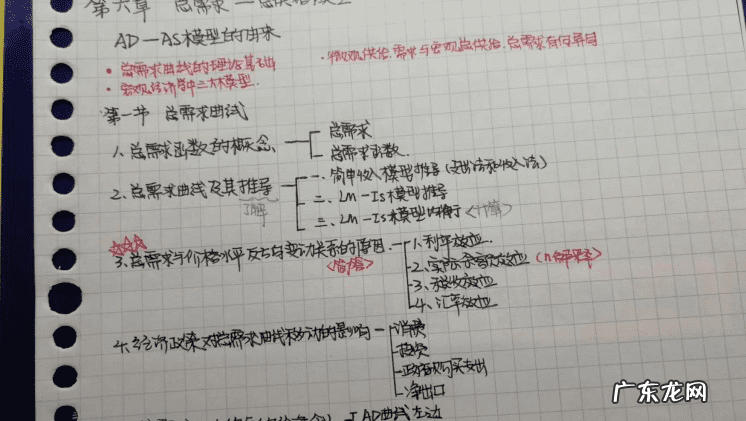 第六章 总需求—总供给模型
AD—AS模型的由来
• 总需求曲线的理论基础
• 微观供给、需求与宏观总供给、总需求有何异同
• 宏观经济学中三大模型.
第一节 总需求曲线
1、总需求函数的概念、
总需求
总需求函数.
2、总需求曲线及其推导
了解
一、简单收入模型推导(支出法和收入法)
二、LM-IS模型推导
三、LM-IS模型均衡<计算>
☆☆☆
3、总需求与价格水平反方向变动关系的原因.
<简答>
1、利率效应.
2、实际余额效应(n解释)
3、税收效应
4、汇率效应
4、经济政策对总需求曲线移动的影响
消费
投资
政府购买支出
净出口
AD曲线左边
广东龙网